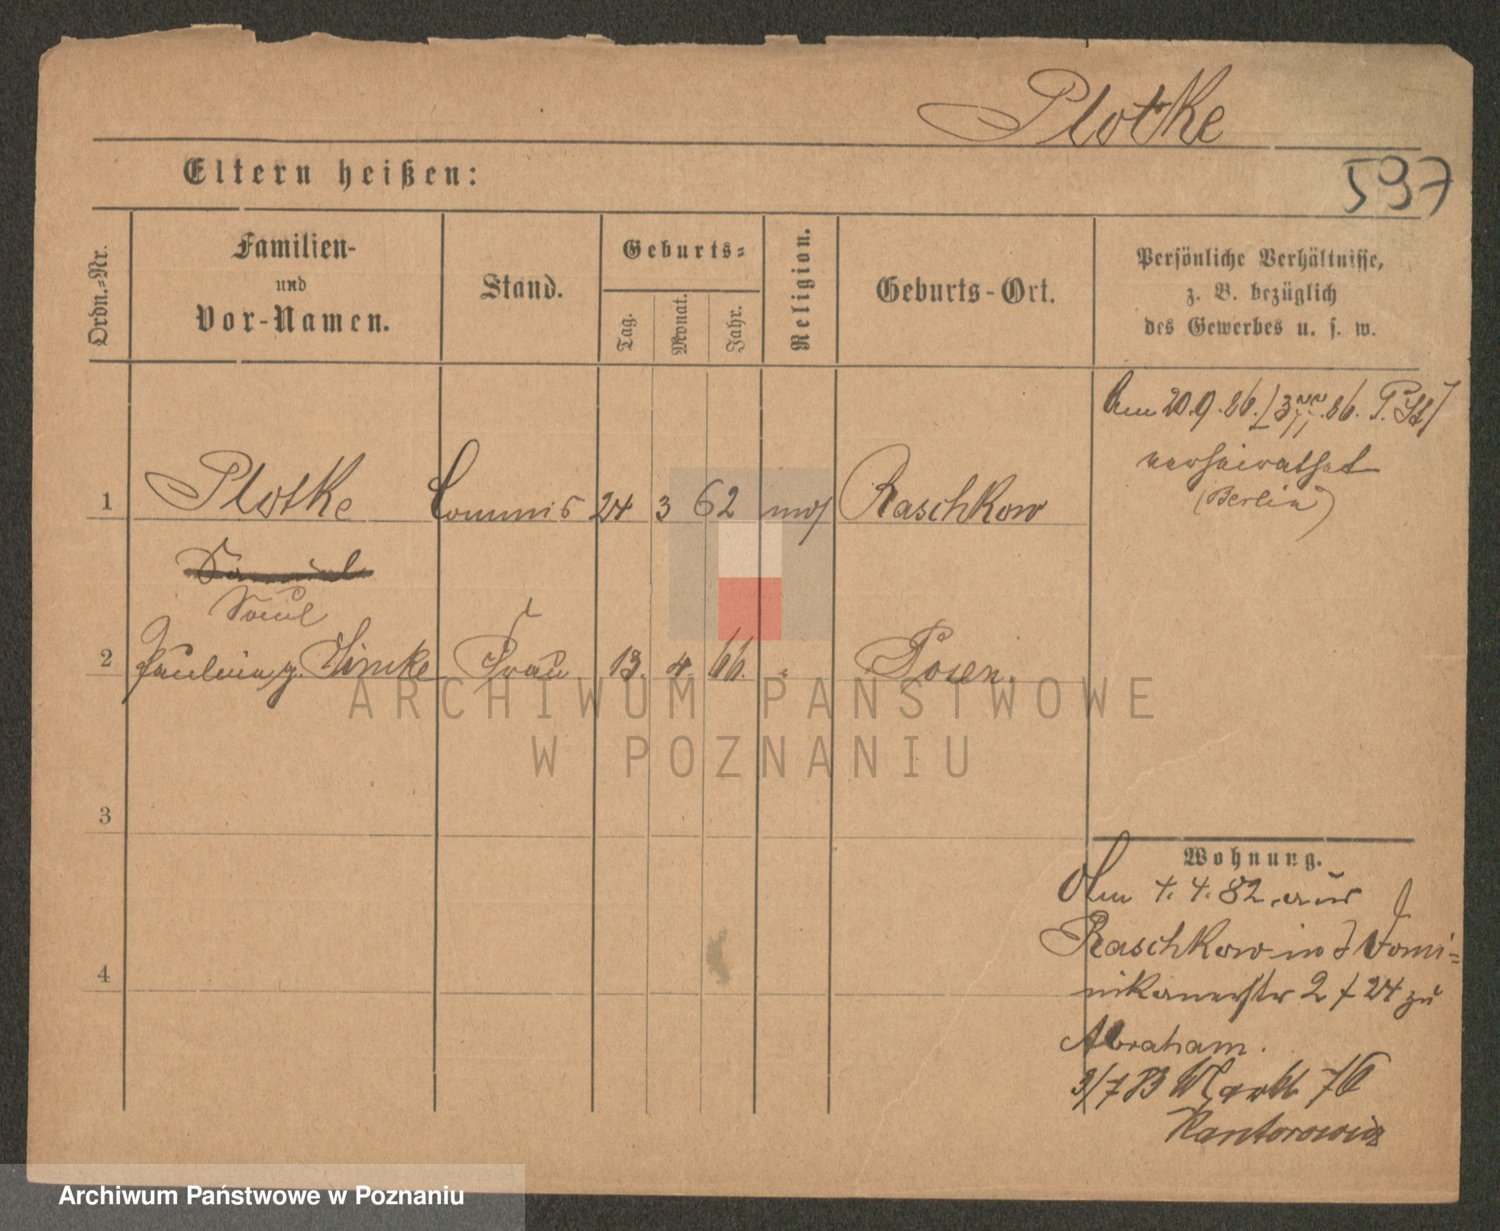 Plotke
Eltern heißen:
597
Ordn.=Nr.
Familien-
und
Vor-Namen.
Stand.
Geburts=
Tag.
Monat.
Jahr.
Religion.
Geburts-Ort.
Persönliche Verhältnisse,
z. B. bezüglich
des Gewerbes u. s. w.
1 Plotke Commis 24 3 62 mos Raschkow
Am 20.9.86.
verheirathet
(Berlin)
Samuel
2 Paulina g. Frau 13. 4. 66. Posen.
3
4
Wohnung.
Am 4.4.82 aus
Raschkow in d Domi=
nikanerstr 2 f 24 zu
Abraham.
3/7 83 Markt 76
Kantorowicz
ARCHIWUM PAŃSTWOWE
W POZNANIU
Archiwum Państwowe w Poznaniu